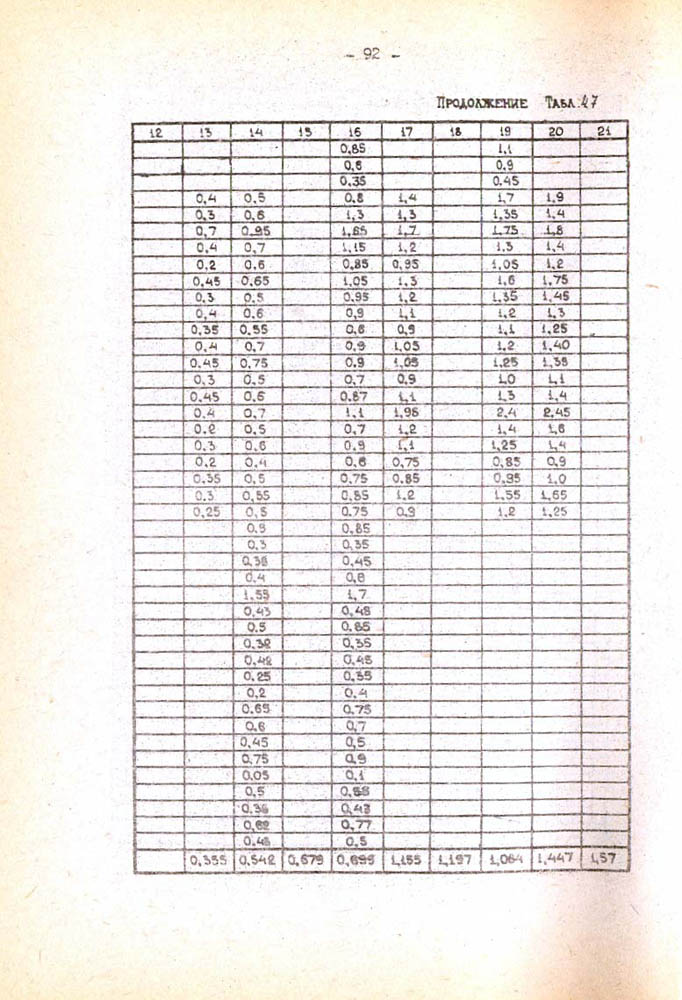 - 92 -
ПРОДОЛЖЕНИЕ ТАБЛ. 27
12 13 14 15 16 17 18 19 20 21
0,85 1,1
0,6 0,9
0.35 0.45
0,4 0,5 0,8 1,4 1,7 1,9
0,3 0,6 1,3 1,3 1,35 1,4
0,7 0,95 1,65 1,7 1,75 1,8
0,4 0,7 1,15 1,2 1,3 1,4
0,2 0,6 0,85 0,95 1,05 1,2
0,45 0,65 1,05 1,3 1,6 1,75
0,3 0,5 0,95 1,2 1,35 1,45
0,4 0,6 0,9 1,1 1,2 1,3
0,35 0,55 0,6 0,9 1,1 1,25
0,4 0,7 0,9 1,05 1,2 1,40
0,45 0,75 0,9 1,05 1,25 1,35
0,3 0,5 0,7 0,9 1,0 1,1
0,45 0,6 0,87 1,1 1,3 1,4
0,4 0,7 1,1 1,96 2,4 2,45
0,2 0,5 0,7 1,2 1,4 1,6
0,3 0,6 0,9 1,1 1,25 1,4
0,2 0,4 0,6 0,75 0,85 0,9
0,35 0,5 0,75 0,85 0,95 1,0
0,3 0,55 0,85 1,2 1,55 1,65
0,25 0,5 0,75 0,9 1,2 1,25
0,85
0,3 0,35
0,36 0,45
0,4 0,6
1,55 1,7
0,43 0,48
0,5 0,65
0,32 0,35
0,42 0,45
0,25 0,35
0,2 0,4
0,65 0,75
0,6 0,7
0,45 0,5
0,75 0,9
0,05 0,1
0,5
0,36 0,43
0,62 0,77
0,5
0,355 0,542 0,679 0,695 1,155 1,197 1,064 1,447 1,57